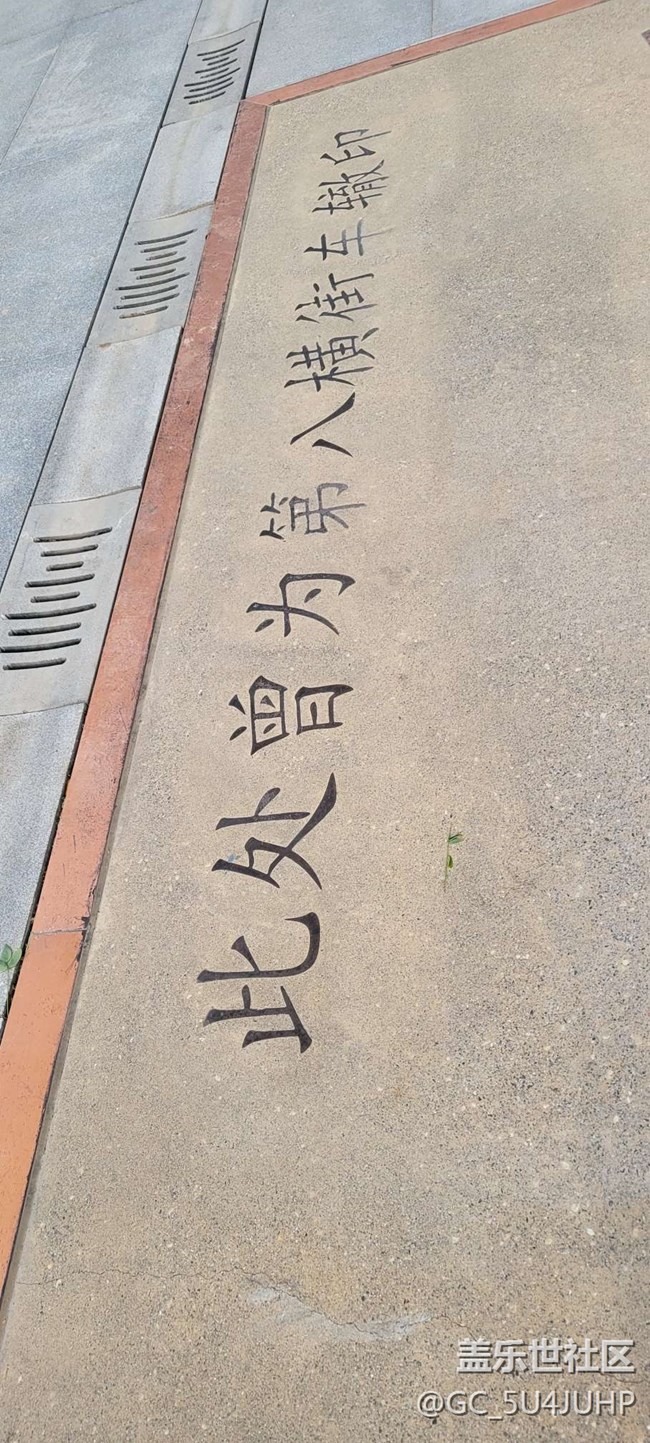 此处曾为第八横街车辙印
盖乐世社区
@GC_5U4JUHP